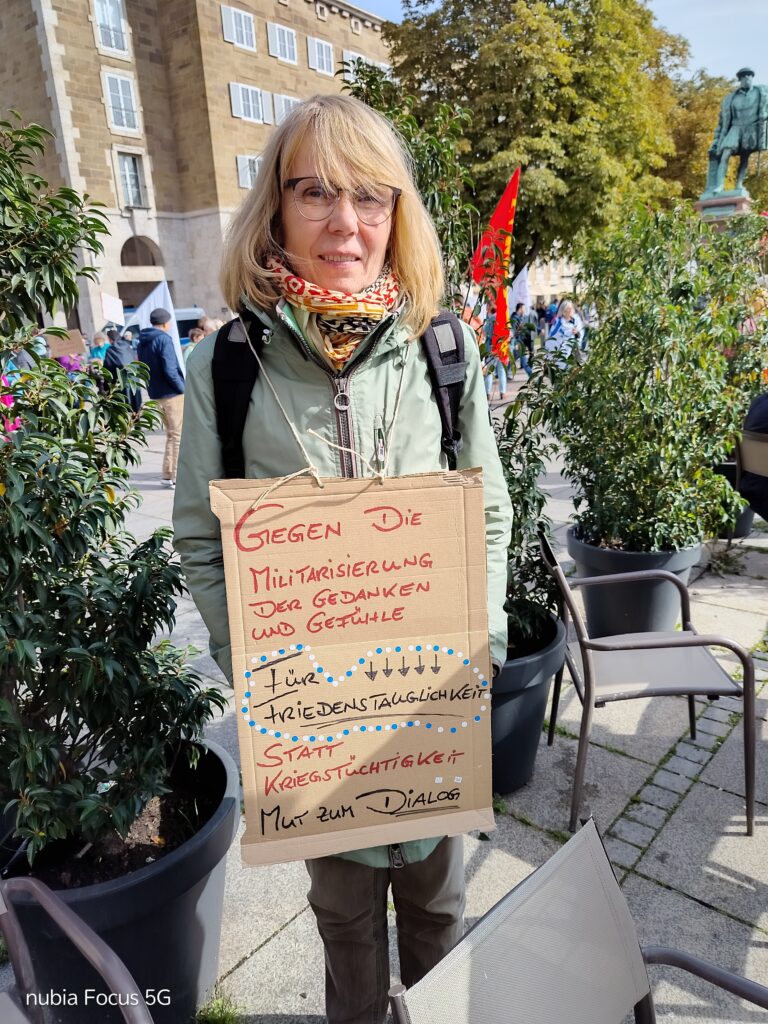 GEGEN DIE
MILITARISIERUNG
DER GEDANKEN
UND GEFÜHLE
FÜR
FRIEDENSTAUGLICHKEIT
STATT
KRIEGSTÜCHTIGKEIT
MUT ZUM DIALOG
nubia Focus 5G